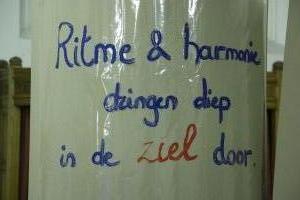 Ritme & harmonie
dringen diep
in de ziel door.